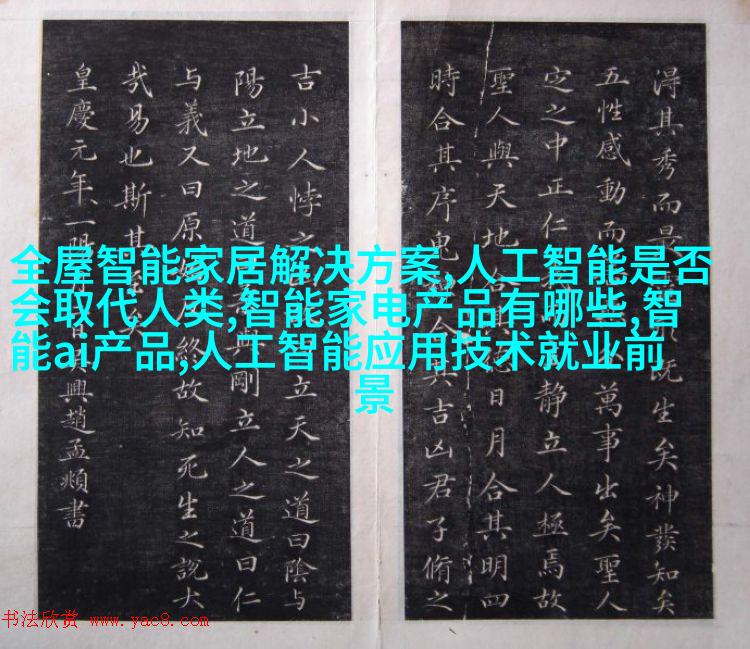 淂其秀而最既生矣神發知矣
五性感動而萬事出矣聖人
定之中正仁靜立人極焉故
聖人與天地合其日月合其明四
時合其序鬼合其吉凶君子脩之
吉小人悖之立天之道曰陰与
陽立地之道與剛立人之道曰仁
与義又曰原終故知死生之說大
哉易也斯其至矣
皇慶元年一明興趙孟頫書
全屋智能家居解决方案,人工智能是否
会取代人类,智能家电产品有哪些,智
能ai产品,人工智能应用技术就业前
景
书法欣赏 www.yac8.com